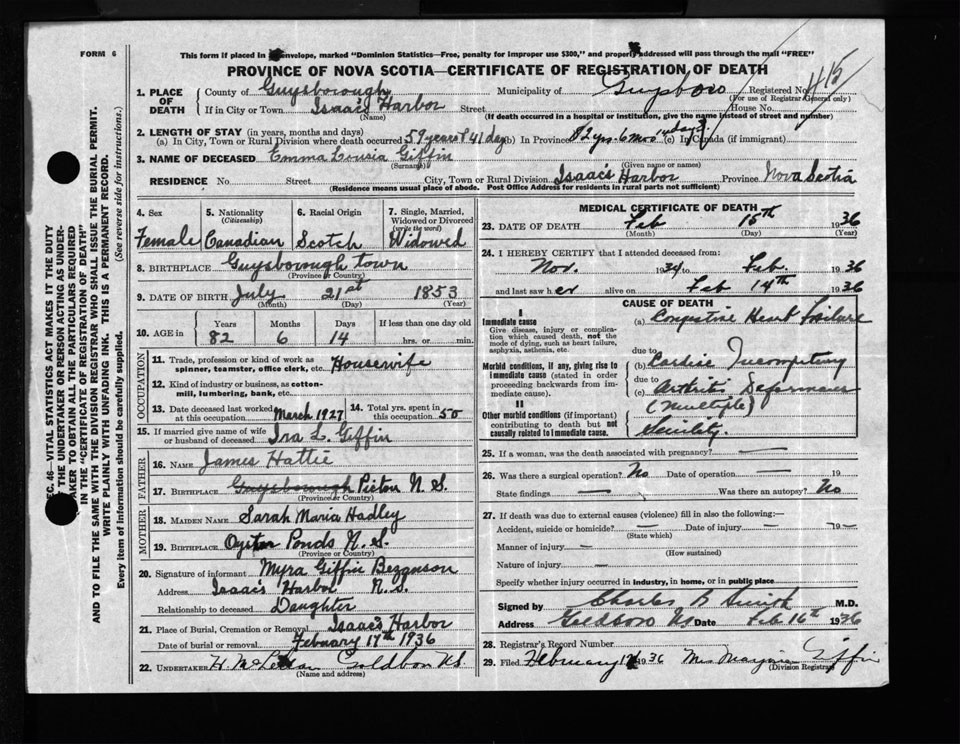 FORM 6
This form if placed in envelope, marked "Dominion Statistics—Free, penalty for improper use $300," and properly addressed will pass through the mail "FREE"
PROVINCE OF NOVA SCOTIA—CERTIFICATE OF REGISTRATION OF DEATH
1. PLACE OF DEATH County of Guysborough Municipality of Guysboro Registered No. 415
(For use of Registrar General only)
If in City or Town Isaac's Harbor Street House No.
(Name) (If death occurred in a hospital or institution, give the name instead of street and number)
2. LENGTH OF STAY (in years, months and days)
(a) In City, Town or Rural Division where death occurred 59 years & 41 days (b) In Province 82 yrs. 6 mos 14 days (c) In Canada (if immigrant)
3. NAME OF DECEASED Emma Louisa Giffin
(Surname) (Given name or names)
RESIDENCE No. Street City, Town or Rural Division Isaac's Harbor Province Nova Scotia
(Residence means usual place of abode. Post Office Address for residents in rural parts not sufficient)
4. Sex Female
5. Nationality (Citizenship) Canadian
6. Racial Origin Scotch
7. Single, Married, Widowed or Divorced (write the word) Widowed
8. BIRTHPLACE Guysborough town
(Province or Country)
9. DATE OF BIRTH July 21st 1853
(Month) (Day) (Year)
10. AGE in Years Months Days If less than one day
82 6 14 hrs. or min.
OCCUPATION
11. Trade, profession or kind of work as spinner, teamster, office clerk, etc. Housewife
12. Kind of industry or business, as cotton-mill, lumbering, bank, etc.
13. Date deceased last worked at this occupation March 1927 14. Total yrs. spent in this occupation 50
15. If married give name of wife or husband of deceased Ira L. Giffin
FATHER
16. NAME James Hattie
17. BIRTHPLACE Guysborough Pictou N S.
(Province or Country)
MOTHER
18. MAIDEN NAME Sarah Maria Hadley
19. BIRTHPLACE Oyster Ponds N. S.
(Province or Country)
20. Signature of informant Myra Giffin Bezanson
Address Isaac's Harbor N. S.
Relationship to deceased Daughter
21. Place of Burial, Cremation or Removal Isaac's Harbor
Date of burial or removal February 17th 1936
22. UNDERTAKER Goldboro N.S.
(Name and address)
MEDICAL CERTIFICATE OF DEATH
23. DATE OF DEATH Feb 15th 1936
(Month) (Day) (Year)
24. I HEREBY CERTIFY that I attended deceased from:
Nov. 1934 to Feb. 1936
and last saw her alive on Feb 14th 1936
CAUSE OF DEATH
I
Immediate cause
Give disease, injury or complication which caused death, not the mode of dying, such as heart failure, asphyxia, asthenia, etc.
(a) Congestive Heart Failure
due to
Morbid conditions, if any, giving rise to immediate cause (stated in order proceeding backwards from immediate cause).
(b) Cardiac Incompetency
due to
(c) Arthritis Deformans
(multiple)
II
Other morbid conditions (if important) contributing to death but not causally related to immediate cause.
Senility.
25. If a woman, was the death associated with pregnancy? —
26. Was there a surgical operation? No Date of operation —
State findings — Was there an autopsy? No
27. If death was due to external causes (violence) fill in also the following:—
Accident, suicide or homicide? — Date of injury — 19—
(State which)
Manner of injury —
(How sustained)
Nature of injury —
Specify whether injury occurred in industry, in home, or in public place
Signed by Charles B Smith M.D.
Address Goldboro NS Date Feb 16th 1936
28. Registrar's Record Number
29. Filed February 1936 Mrs Marjorie Giffin
(Division Registrar)
SEC. 46— VITAL STATISTICS ACT MAKES IT THE DUTY
THE UNDERTAKER OR PERSON ACTING AS UNDER-
TAKER TO OBTAIN ALL THE PARTICULARS REQUIRED
IN THE "CERTIFICATE OF REGISTRATION OF DEATH"
AND TO FILE THE SAME WITH THE DIVISION REGISTRAR WHO SHALL ISSUE THE BURIAL PERMIT.
WRITE PLAINLY WITH UNFADING INK. THIS IS A PERMANENT RECORD.
Every item of information should be carefully supplied. (See reverse side for instructions.)